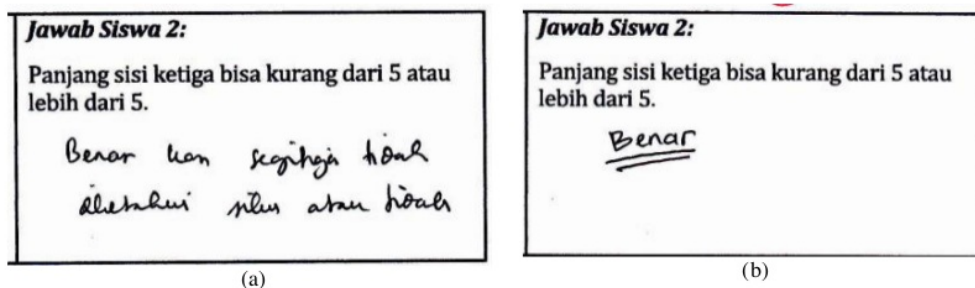 Jawab Siswa 2:
Panjang sisi ketiga bisa kurang dari 5 atau
lebih dari 5.
Benar kan segitiga tidak
diketahui siku atau tidak
(a)
Jawab Siswa 2:
Panjang sisi ketiga bisa kurang dari 5 atau
lebih dari 5.
Benar
(b)